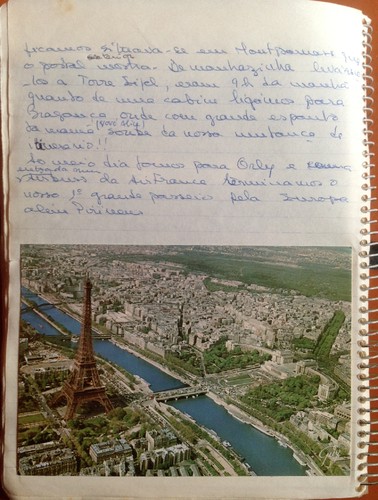 ficamos situava-se em Montparnasse
o postal mostra. De manhãzinha
a Torre Eifel, eram 9h da manhã
quando de uma cabine ligámos para
Bragança, onde com grande espanto
da mamã soube da nossa mudança de
itenerário!!
Ao meio dia fomos para Orly e
entrada num
da Air France terminámos o
nosso 1º grande passeio pela Europa
além Pirineus